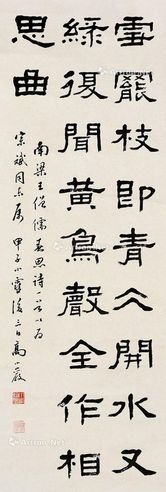 雪罷枝即青仌開水又
綠復聞黃鳥聲全作相
思曲
南梁王僧儒春思詩一首以為
同志屬 甲子小 後三日高小巖